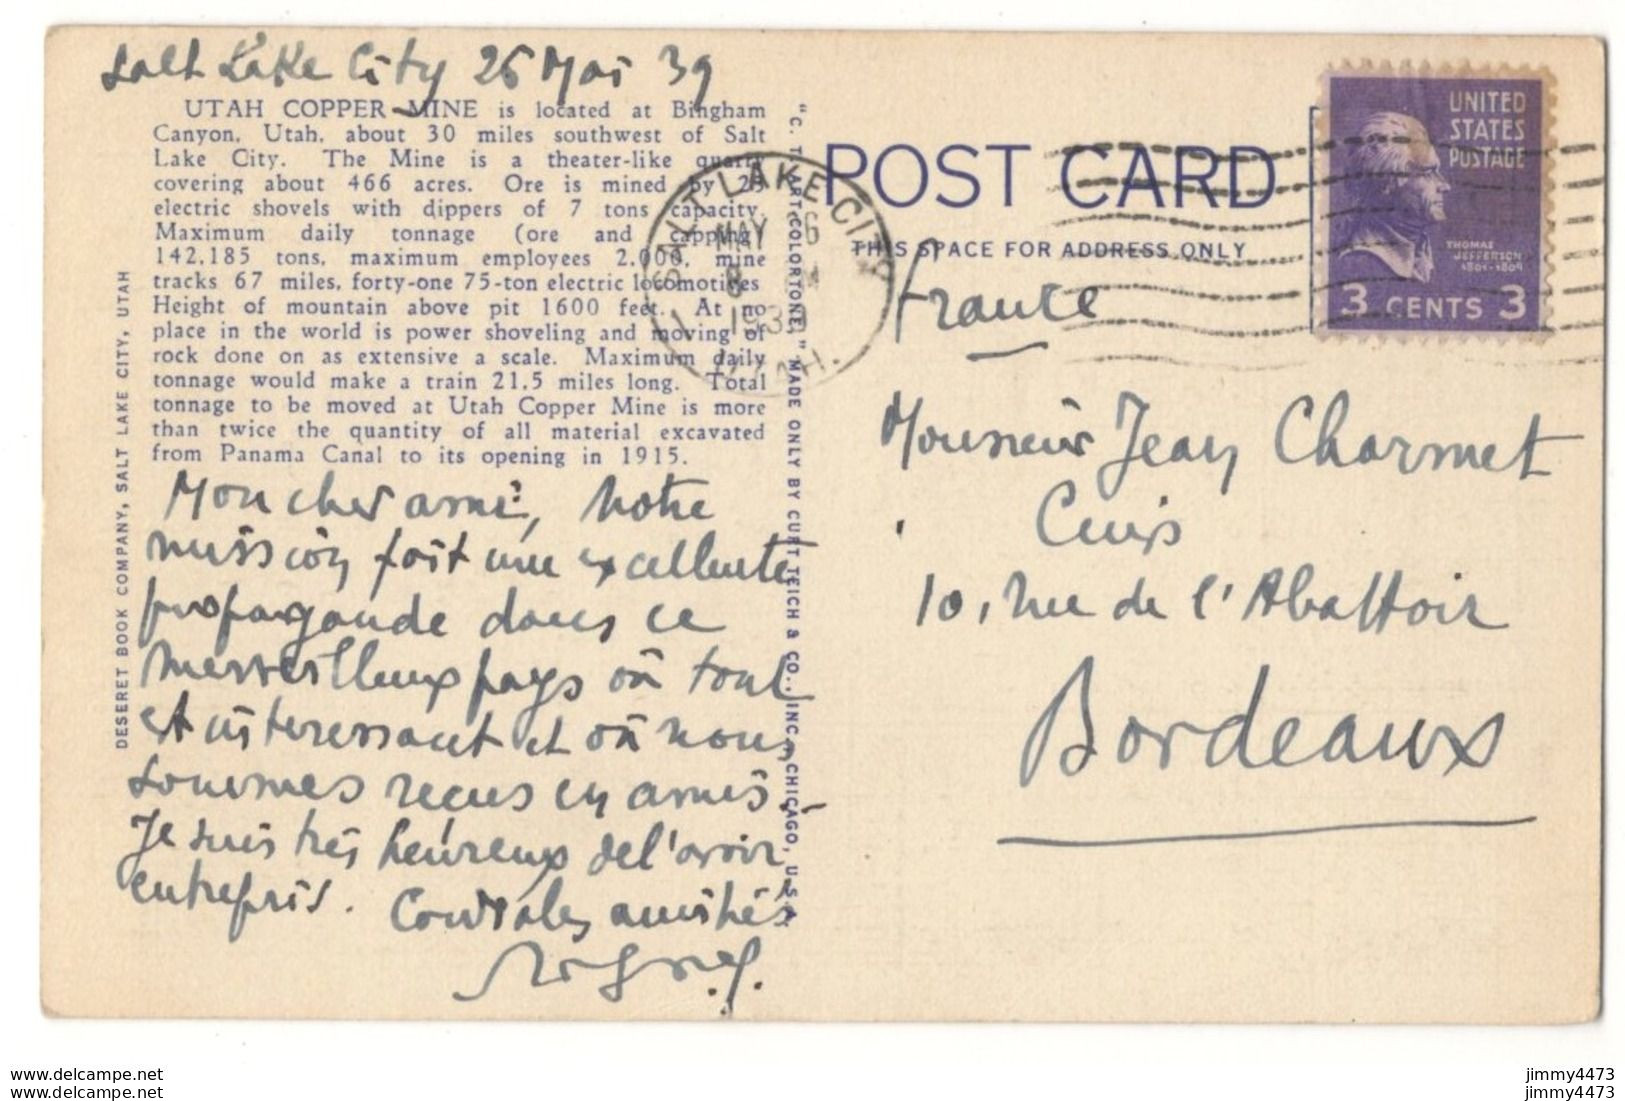 Salt Lake City 26 Mai 39
UTAH COPPER MINE is located at Bingham
Canyon, Utah, about 30 miles southwest of Salt
Lake City. The Mine is a theater-like quarry
covering about 466 acres. Ore is mined by 23
electric shovels with dippers of 7 tons capacity.
Maximum daily tonnage (ore and capping)
142,185 tons, maximum employees 2,000, mine
tracks 67 miles, forty-one 75-ton electric locomotives
Height of mountain above pit 1600 feet. At no
place in the world is power shoveling and moving of
rock done on as extensive a scale. Maximum daily
tonnage would make a train 21.5 miles long. Total
tonnage to be moved at Utah Copper Mine is more
than twice the quantity of all material excavated
from Panama Canal to its opening in 1915.
Mon cher ami, Notre
mission fait une excellente
propagande dans ce
merveilleux pays où tout
est intéressant et où nous
sommes reçus en amis.
Je suis très heureux de l'avoir
entrepris. Cordiales amitiés
DESERET BOOK COMPANY, SALT LAKE CITY, UTAH
"C. T. ART-COLORTONE" MADE ONLY BY CURT TEICH & CO., INC., CHICAGO, U.S.A.
SALT LAKE CITY
MAY 26
8 M
1939
UTAH.
POST CARD
THIS SPACE FOR ADDRESS ONLY
UNITED
STATES
POSTAGE
THOMAS
JEFFERSON
1801-1809
3 CENTS 3
France
Monsieur Jean Charmet
Cuirs
10, rue de l'Abattoir
Bordeaux
www.delcampe.net
www.delcampe.net
jimmy4473
jimmy4473